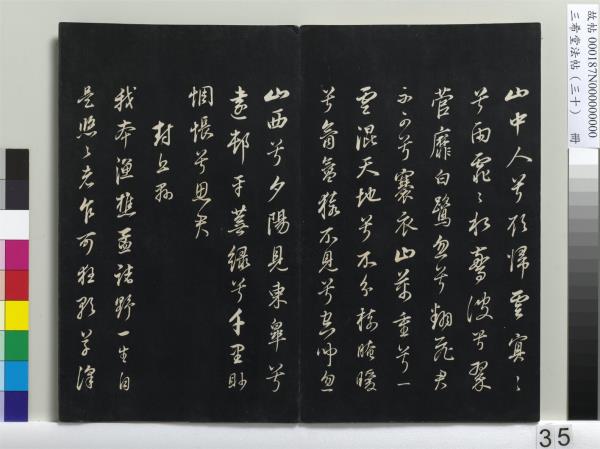 故帖 000187N000000000
三希堂法帖（三十） 冊
山中人兮欲歸雲冥〻
兮雨霏〻水驚波兮翠
菅靡白鷺忽兮翻飛君
不可兮褰衣山萬重兮一
雲混天地兮不分樹晻曖
兮氛氳猿不見兮空聞忽
山西兮夕陽見東皋兮
遠邨平蕪綠兮千里眇
惆悵兮思君
封丘縣
我本漁樵孟諸野一生自
是悠〻者乍可狂歌草澤
35